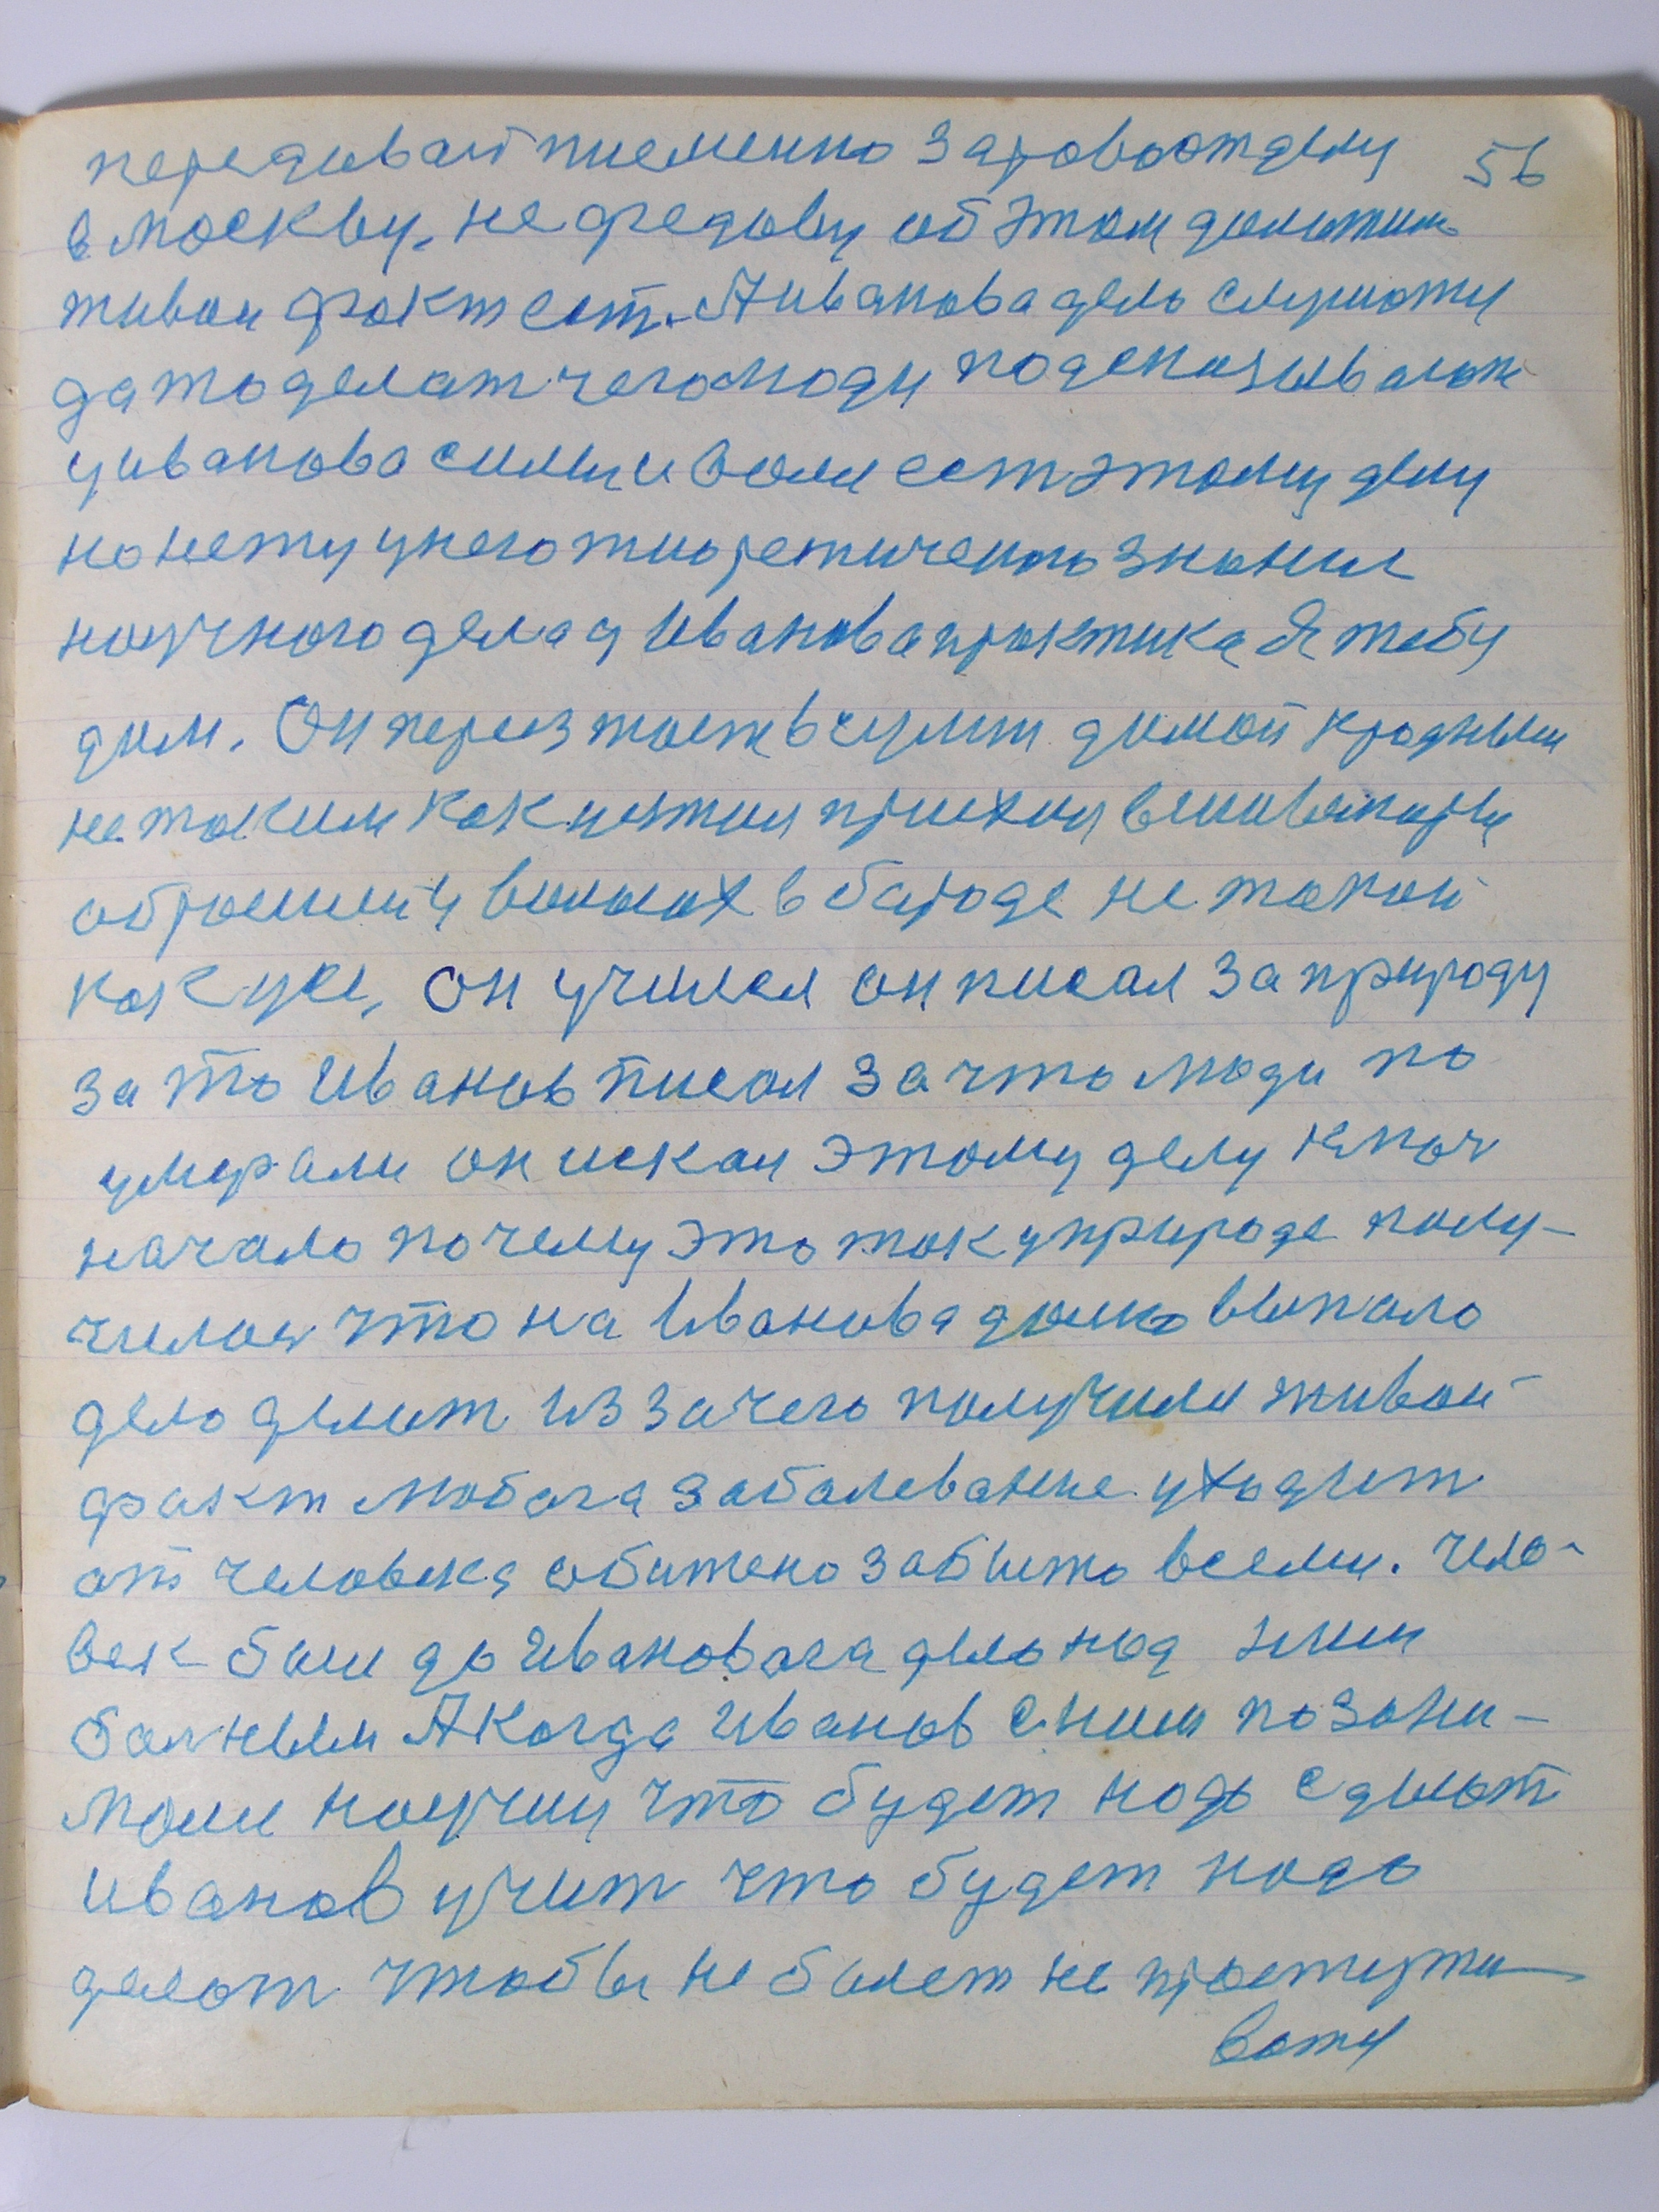 передавай писменно здравоотделу 56
в москву, не федову об этом доложим
живои факт ест. А иванова дело слушоту
да то делат чего люди подсказивают
у иванова силы и воли ест этому делу
но нету у него тиоретическо знания
научного дела у Иванова практика Я тебу
дам. Он перез тоеж в сулин домой к родным
не таким как уехал приехал
в волосах в бароде не такой
как усе, он учился он писал за природу
за то Иванов писал за что люди по
умерали он искал этому делу ключ
начало почему это так у природе полу-
чилос что на Иванова долю выпало
дело делат из за чего получили живой
факт любога заболевание уходит
от человека обижено забыто всеми. чело-
век был до Ивановага дело над ним
болным А когда Иванов с ним позани-
мался научил что будет надо сделат
Иванов учит что будет надо
делат чтобы не болет не простужи-
ват